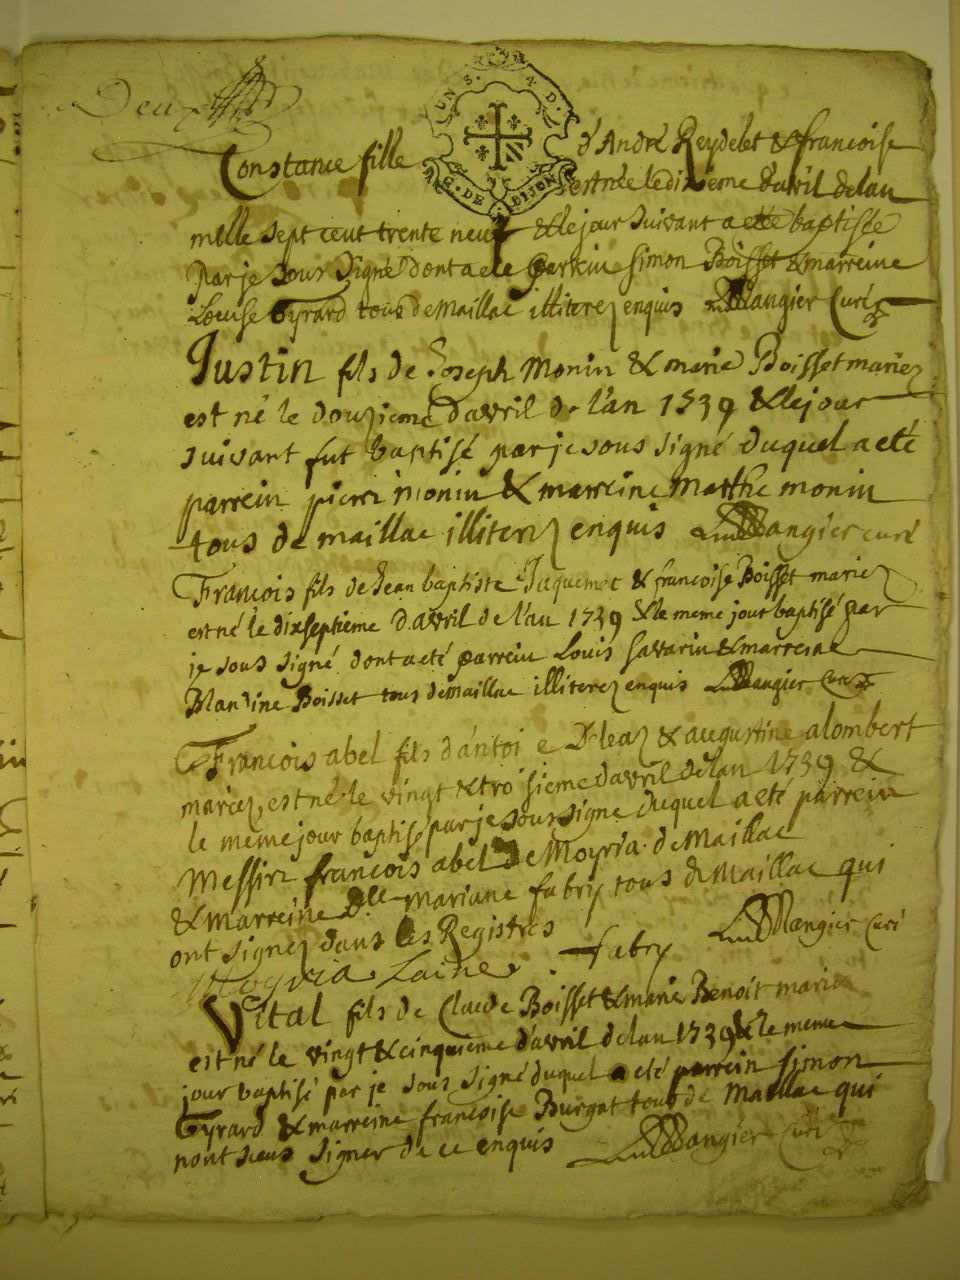 Deux
UN S. 4 D.
G. DE DIJON
Constance fille d'André Reydelet & francoise
est née le dixieme d'avril de lan
mille sept cent trente neuf & le jour suivant a etté baptisée
par je sous signé dont a eté parrein simon Boisset & marreine
Louise Tyrard tous de Maillac illiterez enquis Mangier Curé
Justin fils de Joseph Monin & marie Boisset mariez
est né le douzieme d'avril de l'an 1739 & le jour
suivant fut baptisé par je sous signé duquel a eté
parrein pierre monin & marreine Marthe monin
tous de maillac illiterez enquis Mangier curé
Francois fils de Jean baptiste Juquemet & francoise Boisset mariez
est né le dixseptieme d.avril de l'an 1739 & le meme jour baptisé par
je sous signé dont a eté parrein Louis savarin & marreine
Blandine Boisset tous de maillac illiterez enquis Mangier Curé
Francois abel fils d'antoine Deleaz & augustine alombert
mariez, est né le vingt & troisieme d'avril de lan 1739 &
le meme jour baptisé par je sous signé duquel a eté parrein
Messire francois abel de Moyria de Maillac
& marreine Dlle mariane fabry tous de Maillac qui
ont signez dans les Registres Mangier Curé
Moyria Lainé fabry
Vital fils de Claude Boisset & marie Benoit mariez
est né le vingt & cinquieme d'avril de lan 1739 & le meme
jour baptisé par je sous signé duquel a eté parrein simon
Tyrard & marreine francoise Burgat tous de Maillac qui
nont sceus signer de ce enquis Mangier Curé